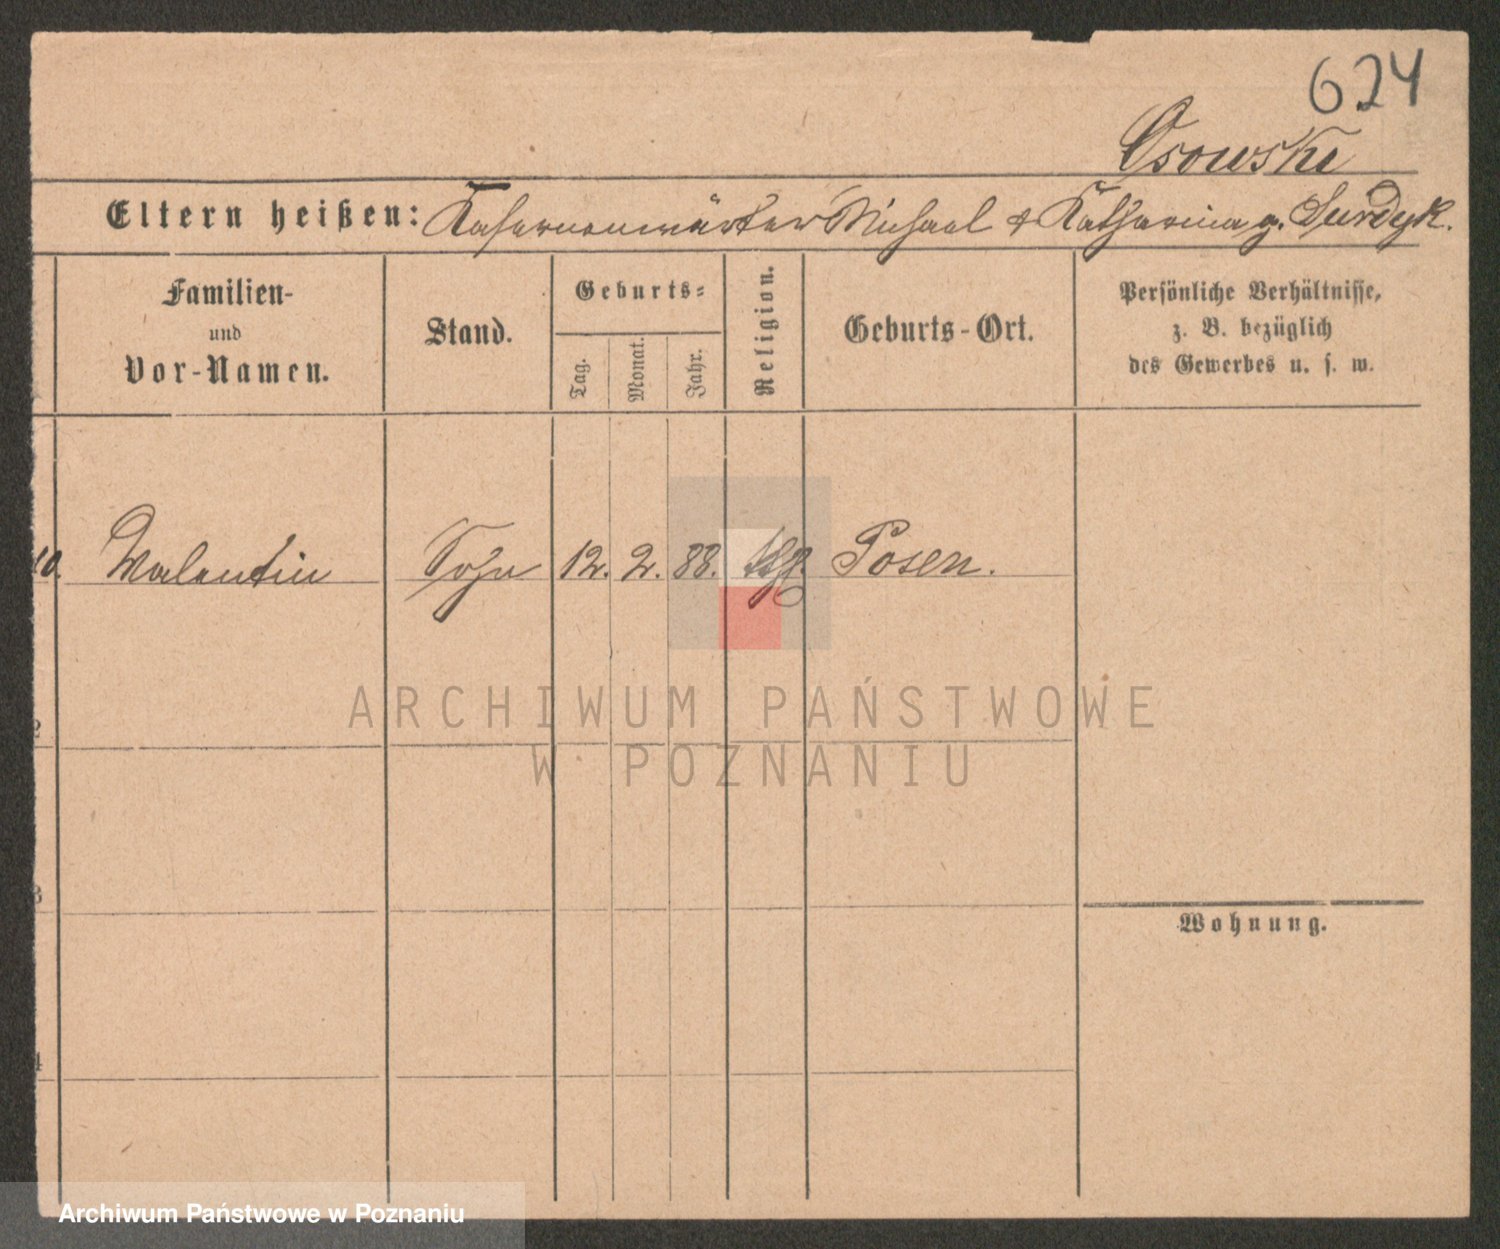 624
Osowski
Eltern heißen: Kasernenwärter Michael & Katharina g. Surdyk.
Familien-
und
Vor-Namen.
Stand.
Geburts-
Tag.
Monat.
Jahr.
Religion.
Geburts-Ort.
Persönliche Verhältnisse,
z. B. bezüglich
des Gewerbes u. s. w.
10. Valentin Sohn 12. 2. 88. kth. Posen.
2
3
4
Wohnung.
ARCHIWUM PAŃSTWOWE
W POZNANIU
Archiwum Państwowe w Poznaniu